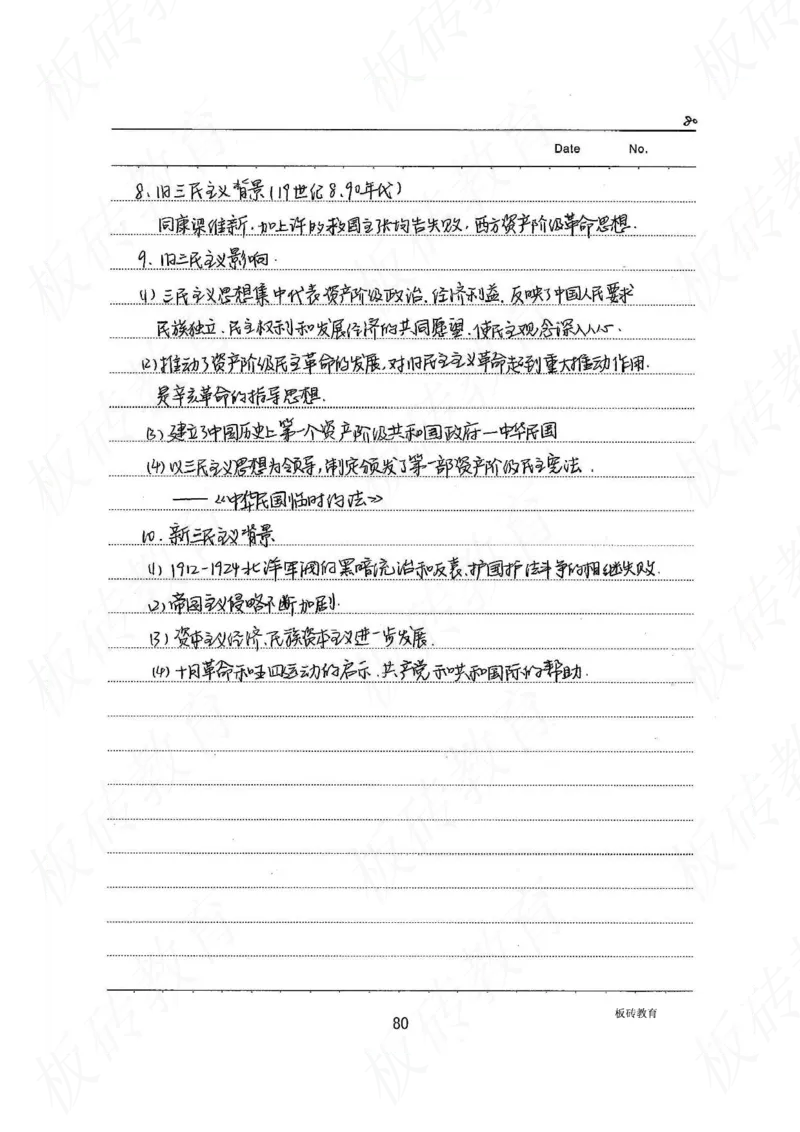 80
Date No.
8. 旧三民主义背景(19世纪8.90年代)
同康梁维新.加上许的救国主张均告失败,西方资产阶级革命思想.
9. 旧三民主义影响.
(1) 三民主义思想集中代表资产阶级政治.经济利益.反映了中国人民要求
民族独立.民主权利和发展经济的共同愿望.使民主观念深入人心.
(2)推动了资产阶级民主革命的发展.对旧民主主义革命起到重大推动作用.
是辛亥革命的指导思想.
(3) 建立了中国历史上第一个资产阶级共和国政府—中华民国
(4) 以三民主义思想为领导,制定颁发了第一部资产阶级民主宪法.
——《中华民国临时约法》
10. 新三民主义背景
(1) 1912-1924北洋军阀的黑暗流治和反袁.护国护法斗争的相继失败.
(2)帝国主义侵略不断加剧.
(3) 资本主义经济.民族资本主义进一步发展.
(4) 十月革命和五四运动的启示.共产党和共和国际的帮助.
板砖教育
80